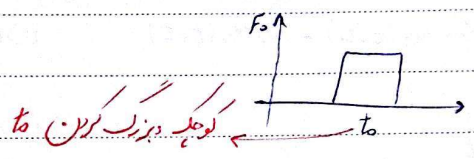 F₀
t₀
کوچک و بزرگ کردن t₀